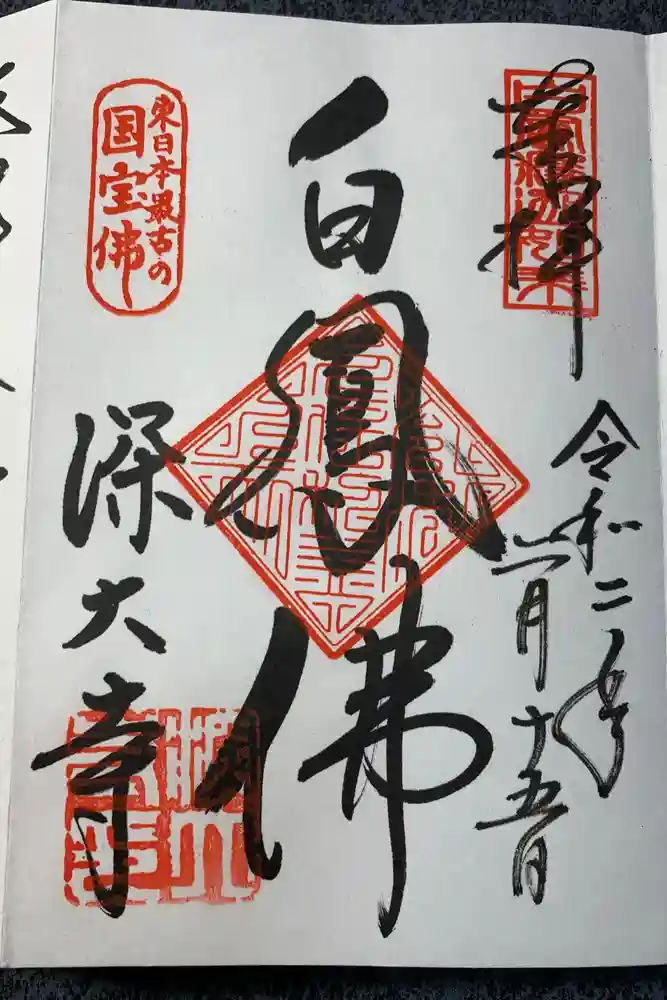 奉拝
白鳳釈迦如来
令和二年
一月十五日
白鳳佛
東日本最古の
国宝佛
深大寺